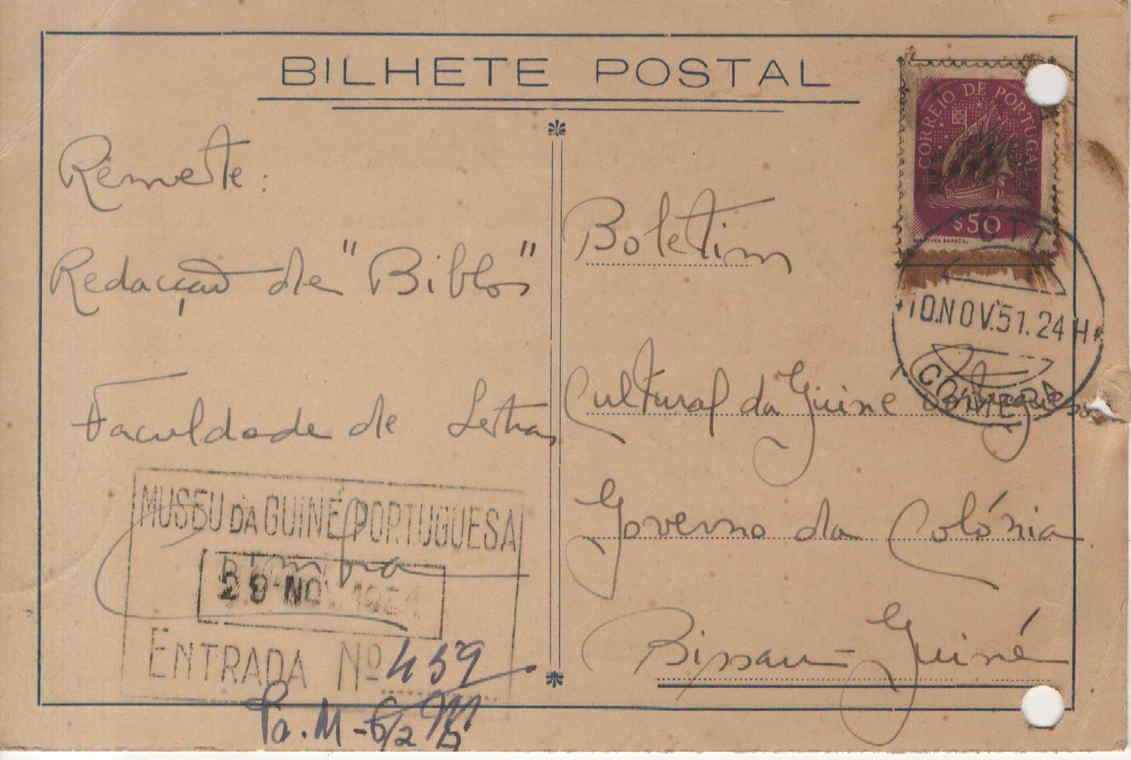 BILHETE POSTAL
CORREIO DE PORTUGAL
$50
CTT
10.NOV.51.24H
COIMBRA
Remete:
Redacção de "Biblos"
Faculdade de Letras
Coimbra
Boletim
Cultural da Guiné Portuguesa
Governo da Colónia
Bissau - Guiné
MUSEU DA GUINÉ PORTUGUESA
29 NOV. 1951
ENTRADA Nº 459
Pa. M-6/2